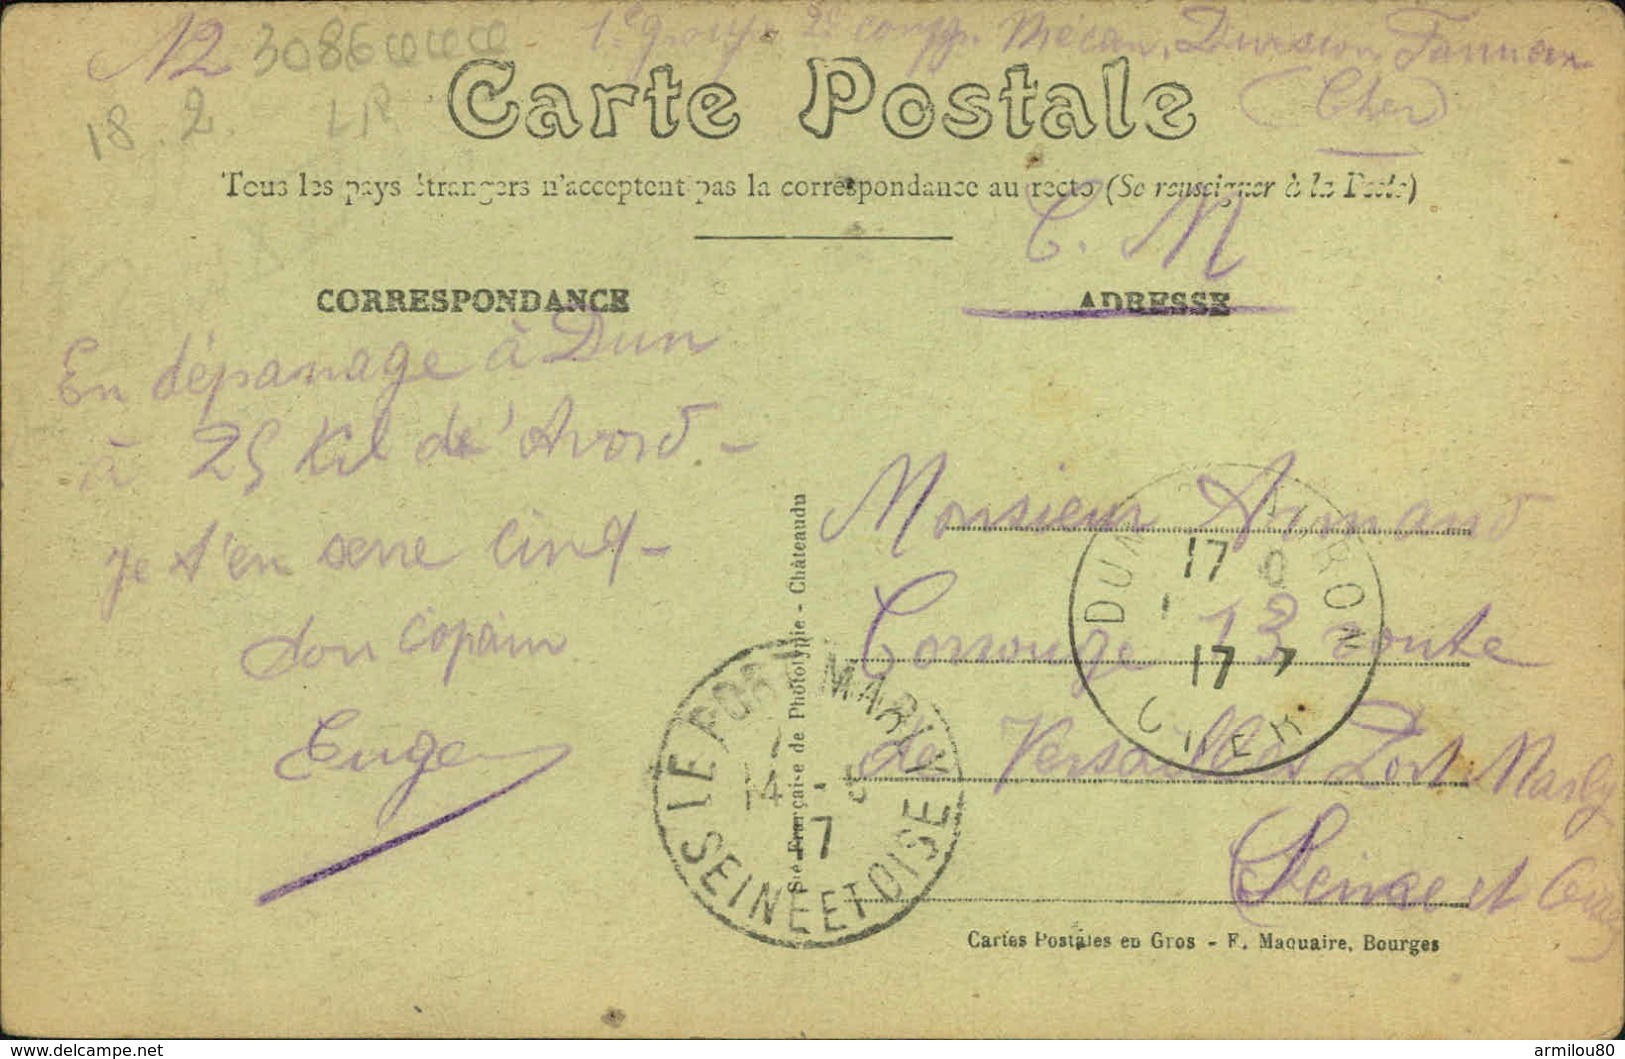 N2 3086
1e groupe 2e comp. Mécan. Division
(Cher)
18.2 LR
Carte Postale
Tous les pays étrangers n'acceptent pas la correspondance au recto (Se renseigner à la Poste)
C. M
CORRESPONDANCE
ADRESSE
En dépannage à Dun
à 25 Kil de d'Avord -
je t'en serre cinq -
ton copain
Eugen
Monsieur Armand
13 route
de Versailles Port Marly
Seine et Oise
DUN AURON
17
17 7
CHER
LE PORT MARLY
14 - 5
7
SEINE ET OISE
Sté Française de Phototypie - Châteaudu
Cartes Postales en Gros - F. Maquaire, Bourges
www.delcampe.net
armilou80